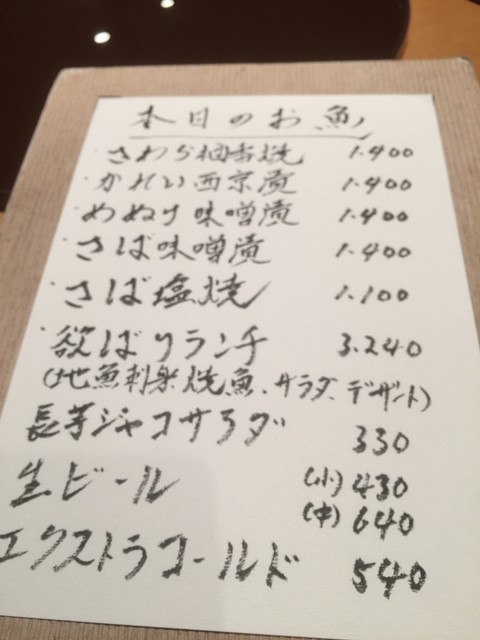 本日のお魚
・さわら柚香焼 1.400
・かれい西京漬 1.400
・めぬけ味噌漬 1.400
・さば味噌漬 1.400
・さば塩焼 1.100
・欲ばりランチ 3.240
(地魚刺身、焼魚、サラダ、デザート)
長芋ジャコサラダ 330
生ビール (小) 430
(中) 640
エクストラコールド 540